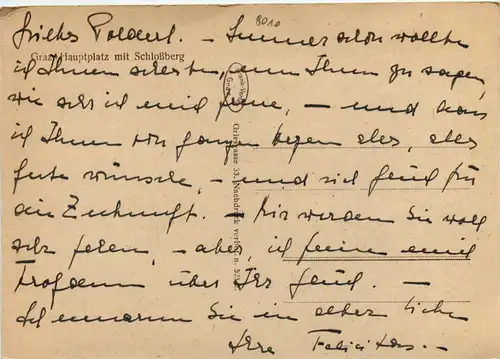 8010
Graz, Hauptplatz mit Schloßberg
– Immer schon wollte
ich Ihnen um Ihnen zu sagen,
wie sehr ich mich freue, – und dass
ich Ihnen von ganzem Herzen alles, alles
Gute wünsche, – und viel Glück für
die Zukunft. – Mir werden Sie wohl
sehr fehlen, – aber, ich freue mich
Trotzdem über Ihr Glück. –
Ich umarme Sie in alter Liebe
Ihre Felicitas. –
Griesgasse 33. Nachdruck verboten